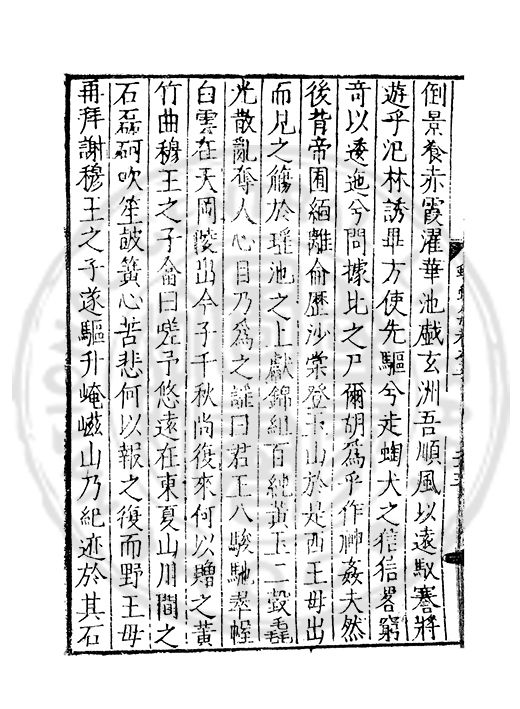 倒景飡赤霞濯華池戲玄洲吾順風以遠馭謇將
遊乎汜林誘畢方使先驅兮走蜪犬之狺狺畧窮
竒以逶迤兮問據比之尸爾胡爲乎作神姦夫然
後背帝囿緬離侖歷沙棠登玉山於是西王母出
而見之觴於瑤池之上獻錦組百純黃玉二瑴毳
光散亂奪人心目乃爲之謠曰君王八駿馳翠幄
白雲在天岡陵出今子千秋尚復來何以贈之黃
竹曲穆王之子侖曰嗟予悠遠在東夏山川間之
石磊砢吹笙鼓簧心苦悲何以報之復而野王母
再拜謝穆王之子遂驅升崦嵫山乃紀迹於其石